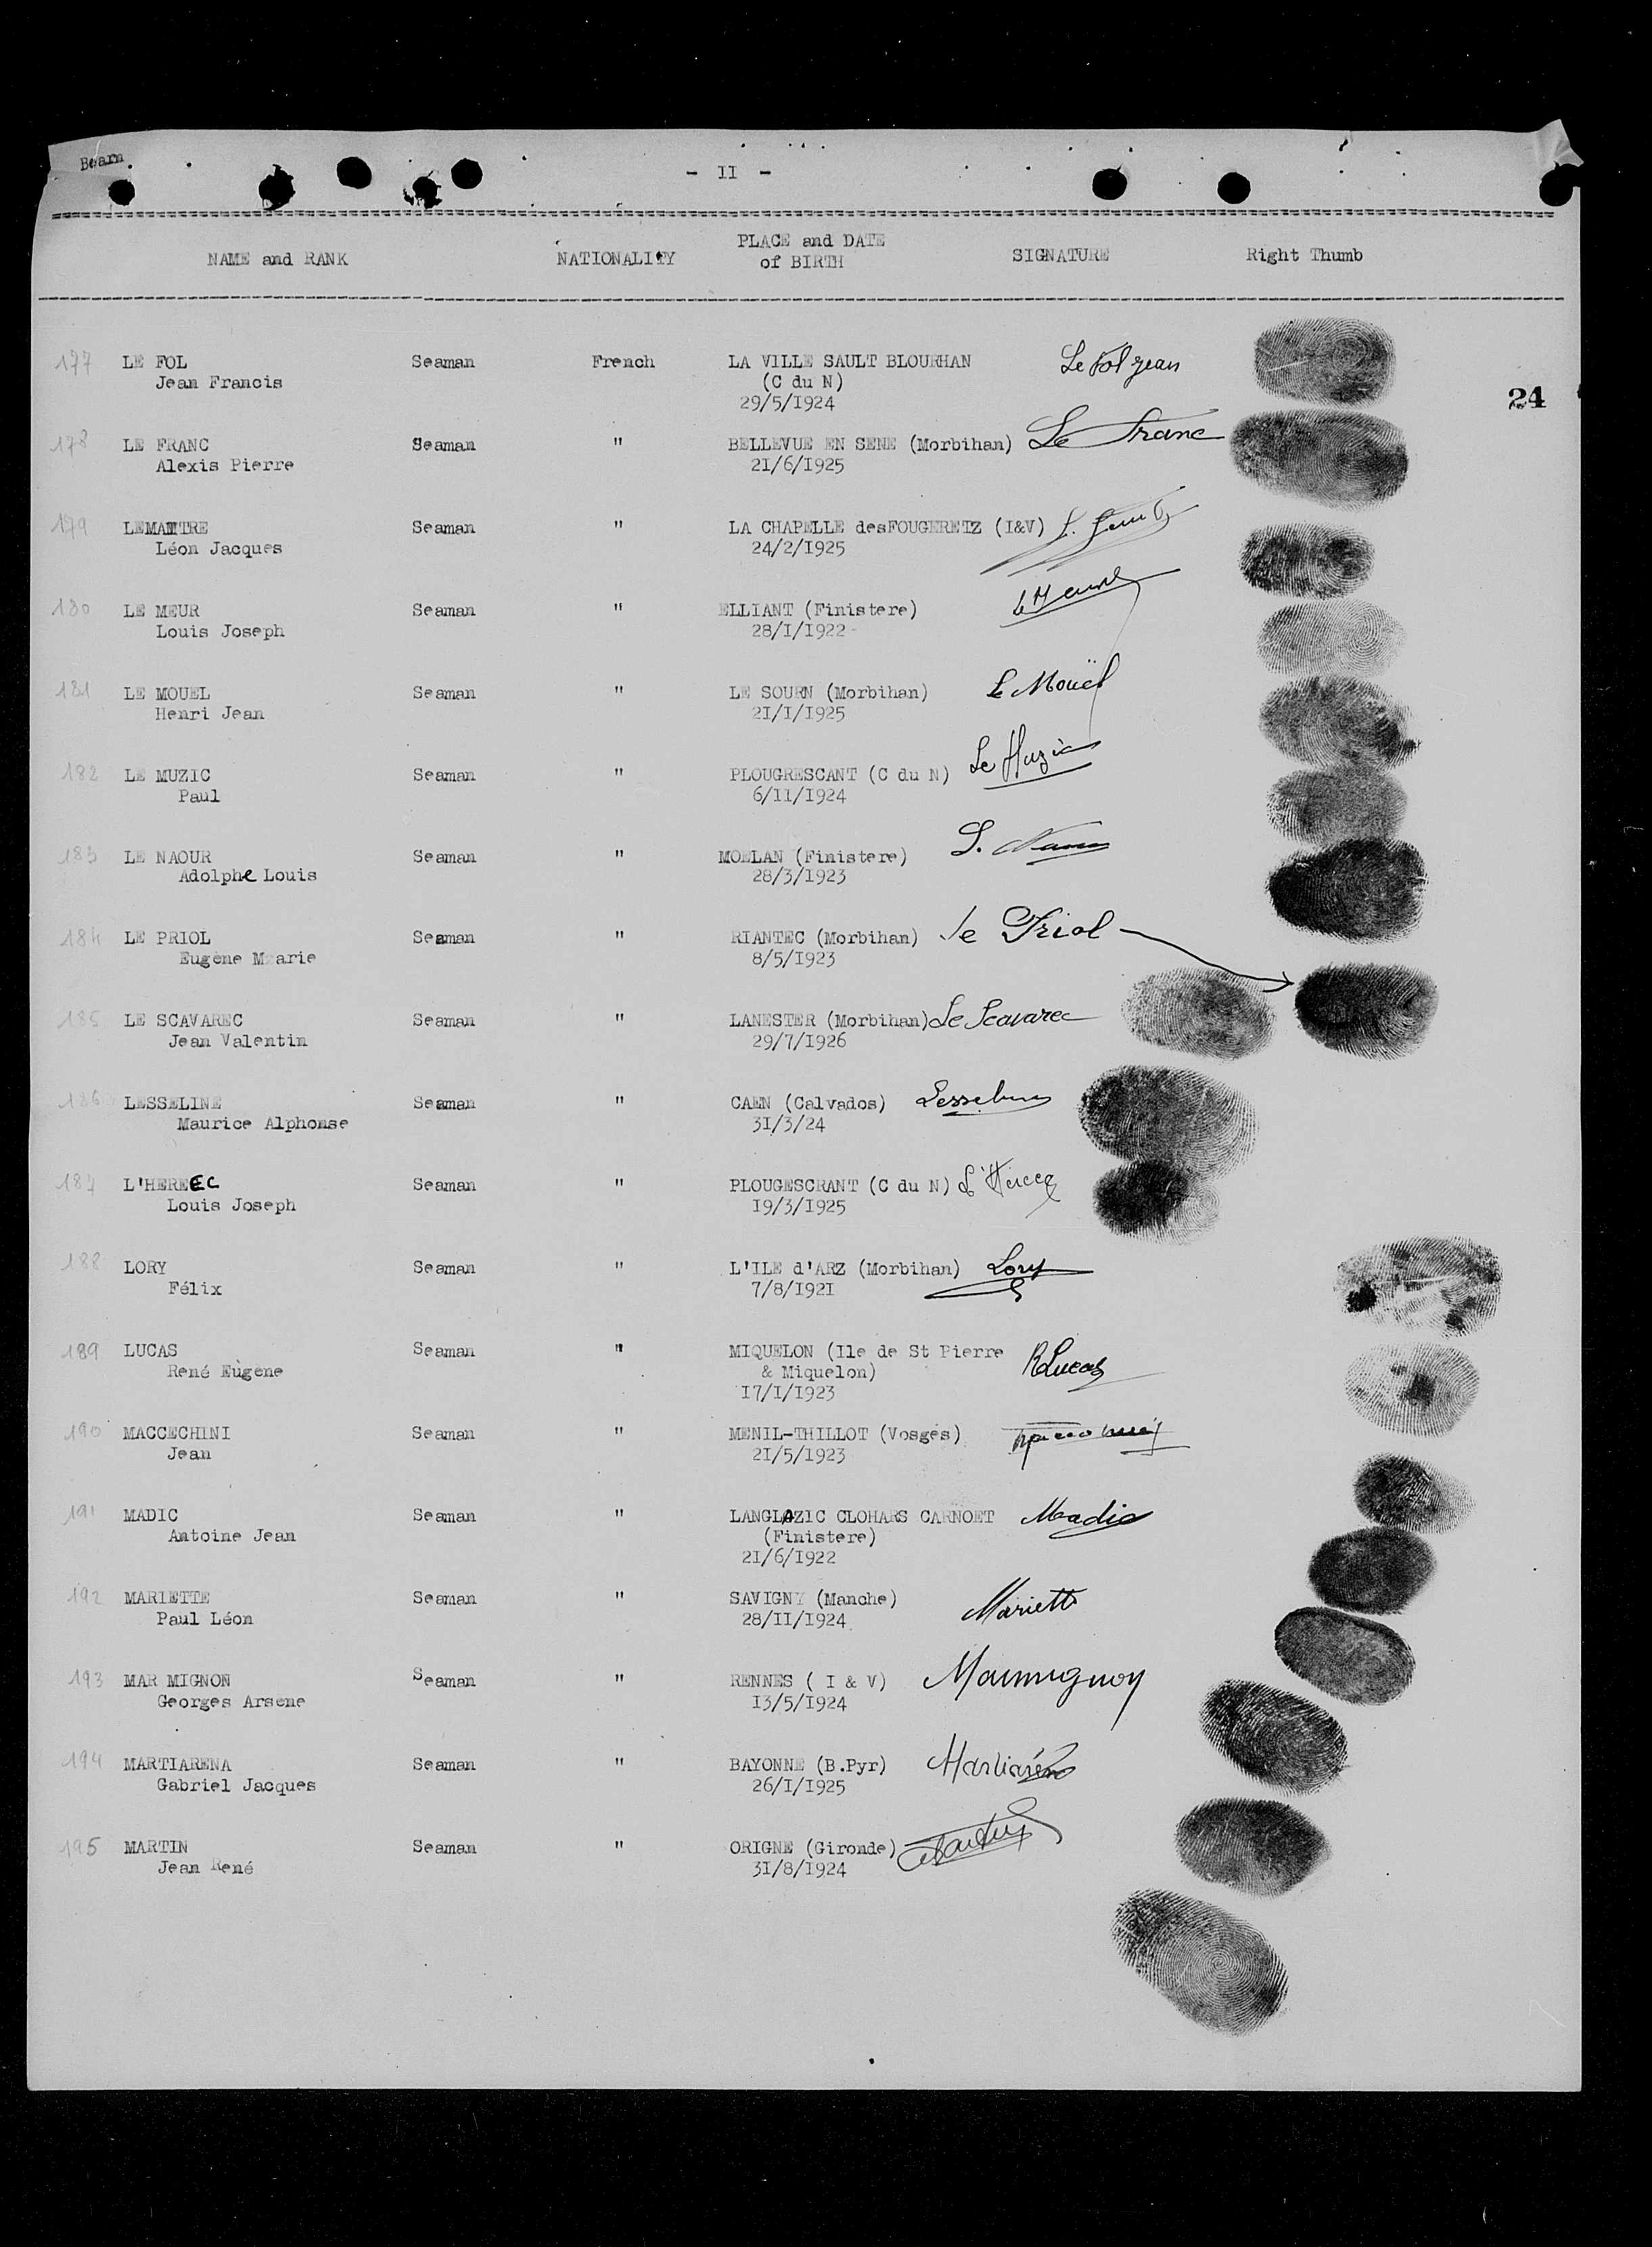 Bearn
- II -
NAME and RANK NATIONALITY PLACE and DATE of BIRTH SIGNATURE Right Thumb
24
177 LE FOL Seaman French LA VILLE SAULT BLOURHAN Le Fol Jean
Jean Francis (C du N)
29/5/I924
178 LE FRANC Seaman " BELLEVUE EN SENE (Morbihan) Le Franc
Alexis Pierre 2I/6/I925
179 LEMAITRE Seaman " LA CHAPELLE desFOUGERETZ (I&V)
Léon Jacques 24/2/I925
180 LE MEUR Seaman " ELLIANT (Finistere)
Louis Joseph 28/I/I922-
181 LE MOUEL Seaman " LE SOURN (Morbihan) Le Mouël
Henri Jean 2I/I/I925
182 LE MUZIC Seaman " PLOUGRESCANT (C du N) Le Muzic
Paul 6/11/I924
183 LE NAOUR Seaman " MOELAN (Finistere)
Adolphe Louis 28/3/I923
184 LE PRIOL Seaman " RIANTEC (Morbihan) le Priol
Eugène M arie 8/5/I923
185 LE SCAVAREC Seaman " LANESTER (Morbihan) Le Scavarec
Jean Valentin 29/7/I926
186 LESSELINE Seaman " CAEN (Calvados) Lesseline
Maurice Alphonse 3I/3/24
187 L'HEREEC Seaman " PLOUGESCRANT (C du N)
Louis Joseph I9/3/I925
188 LORY Seaman " L'ILE d'ARZ (Morbihan) Lory
Félix 7/8/I92I
189 LUCAS Seaman " MIQUELON (Ile de St Pierre RLucas
René Eùgene & Miquelon)
I7/I/I923
190 MACCECHINI Seaman " MENIL-THILLOT (Vosges)
Jean 2I/5/I923
191 MADIC Seaman " LANGLAZIC CLOHARS CARNOET Madic
Antoine Jean (Finistere)
2I/6/I922
192 MARIETTE Seaman " SAVIGNY (Manche) Mariette
Paul Léon 28/II/I924
193 MAR MIGNON Seaman " RENNES ( I & V) Marmignon
Georges Arsene I3/5/I924
194 MARTIARENA Seaman " BAYONNE (B.Pyr) Martiaréna
Gabriel Jacques 26/I/I925
195 MARTIN Seaman " ORIGNE (Gironde)
Jean René 3I/8/I924